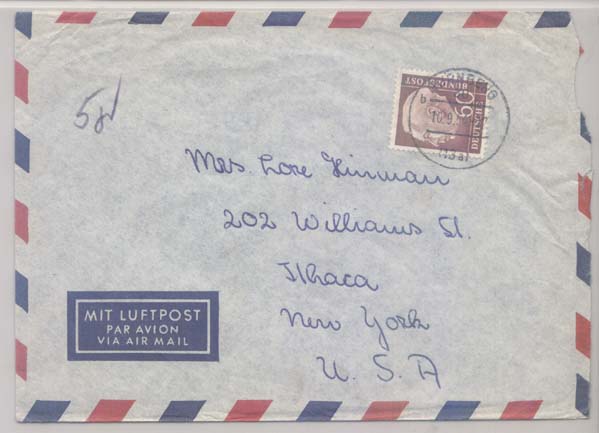 5
60
DEUTSCHE
BUNDESPOST
(13a)
Mrs. Lore Hinman
202 Williams St.
Ithaca
New York
U. S. A
MIT LUFTPOST
PAR AVION
VIA AIR MAIL